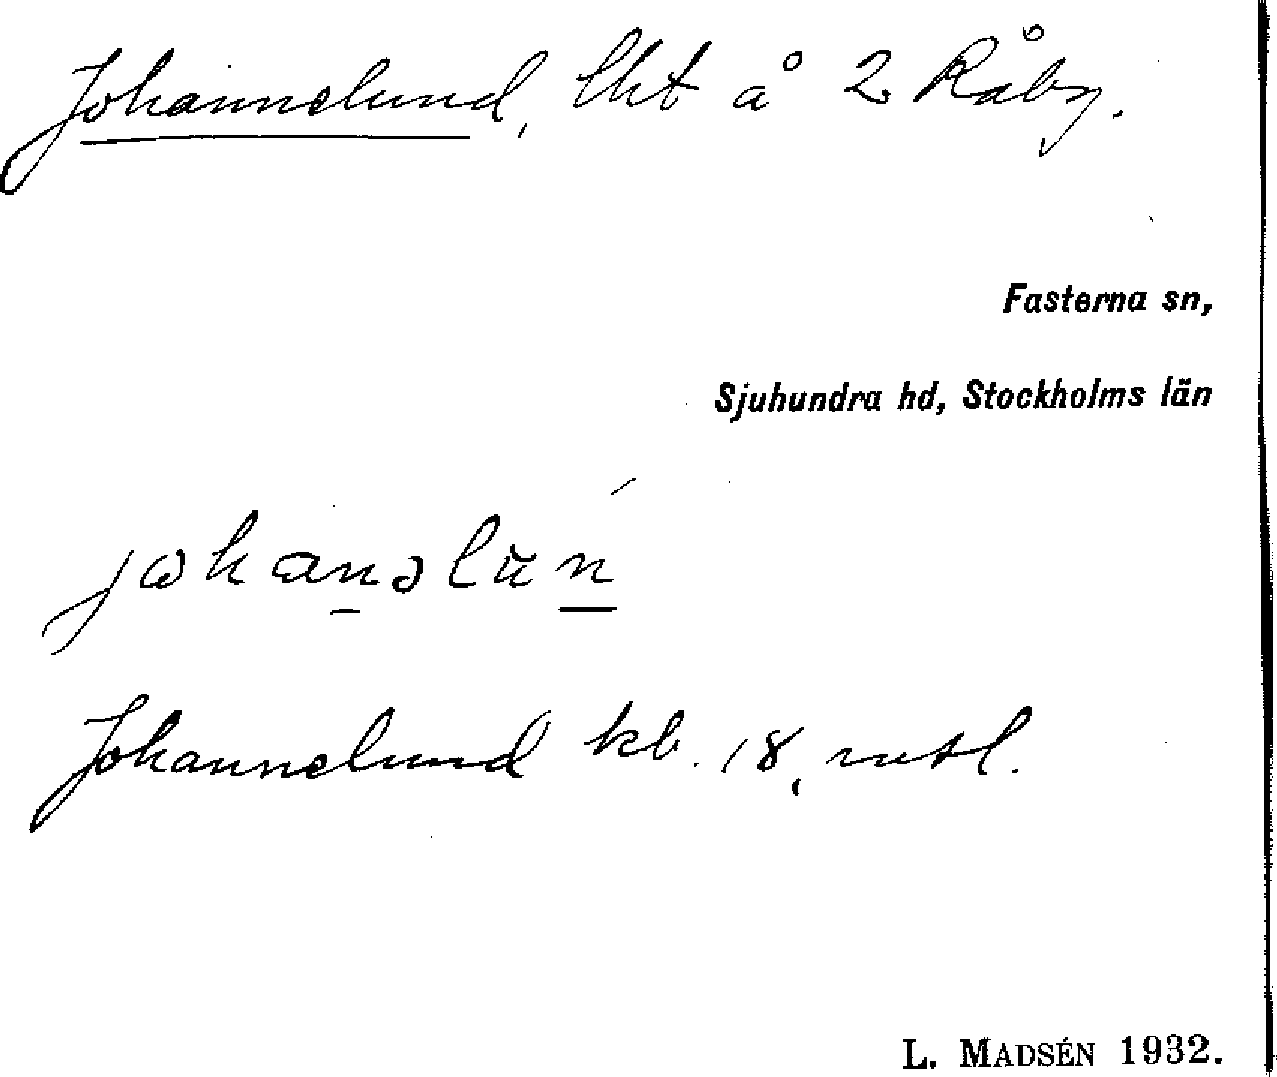 Johannelund, lht å 2 Råby.
Fasterna sn,
Sjuhundra hd, Stockholms län
johan̲əlŭn̲´
Johannelund kb. 18, mtl.
L. MADSÉN 1932.